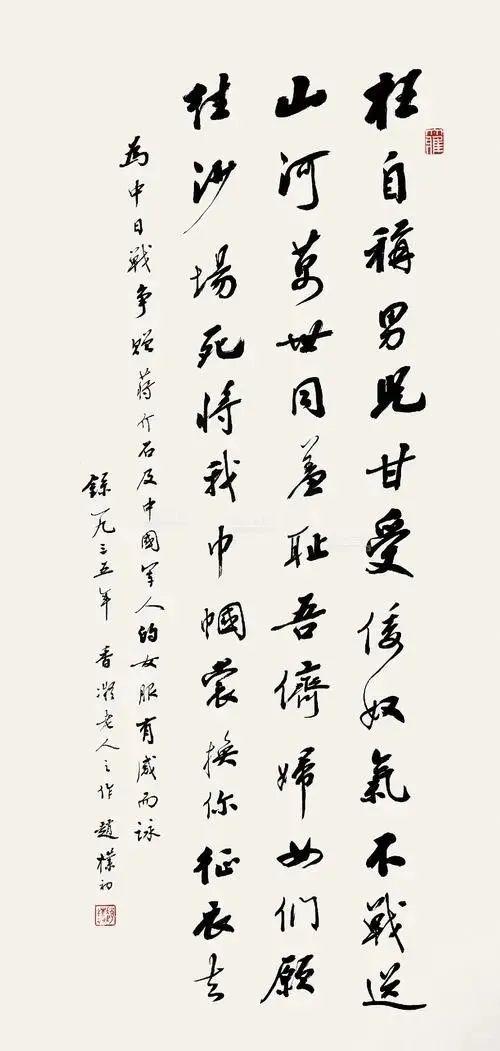 枉自稱男児甘受倭奴氣不戰送
山河萬世同羞耻吾儕婦女們願
往沙場死將我巾帼裳換你征衣去
為中日戰争贈蔣介石及中國軍人的女服有感而詠
錄一九三五年 香凝老人之作 趙樸初